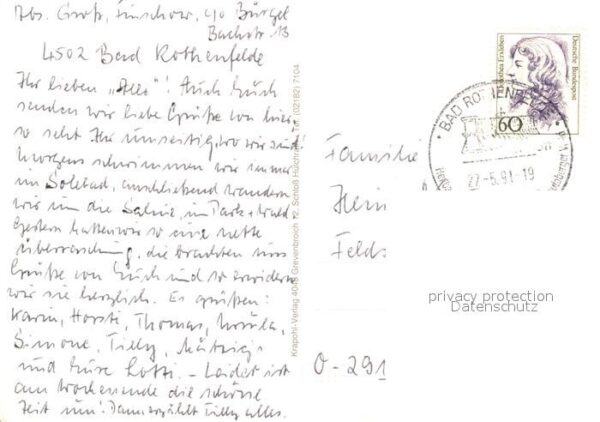 Abs. Groß, Finschow, c/o Bürgel
Bachstr. 13
4502 Bad Rothenfelde
Ihr lieben „Alles"! Auch Euch
senden wir liebe Grüße von hier,
so seht Ihr umseitig, wo wir sind!
Morgens schwimmen wir immer
im Solebad, anschließend wandern
wir um die Saline, im Park + Wald.
Gestern hatten wir so eine nette
Überraschung, die brachten uns
Grüße von Euch und so erwidern
wir sie herzlich. Es grüßen:
Karin, Horsti, Thomas, Ursula,
Simone, Tilly,
und Eure Lotti. – Leider ist
am Wochenende die schöne
Zeit um! Dann erzählt Tilly alles.
Krapohl-Verlag 4048 Grevenbroich 12 Schloß Hülchrath Tel. (02182) 7104
Deutsche Bundespost
Dorothea Erxleben
60
BAD ROTHENFELDE
27.-5.91-19
Familie
Hein
Felds
O-291
privacy protection
Datenschutz